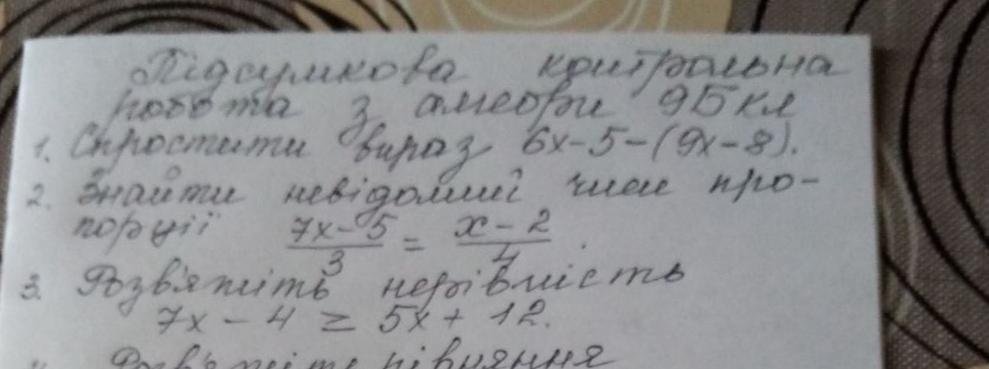 Підсумкова контрольна
робота з алгебри 9Б кл
1. Спростити вираз 6x-5-(9x-8).
2. Знайти невідомий член про-
порції (7x-5)/3 = (x-2)/4.
3. Розв'яжіть нерівність
7x - 4 ≥ 5x + 12.
4. Розв'яжіть рівняння